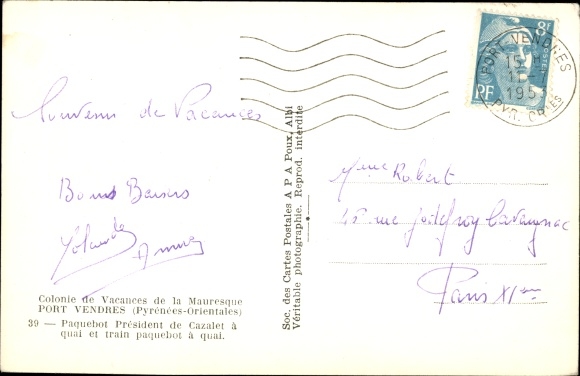 Souvenir de Vacances
Bons Baisers
Yolande
Colonie de Vacances de la Mauresque
PORT VENDRES (Pyrénées-Orientales)
39 — Paquebot Président de Cazalet à
quai et train paquebot à quai.
Soc. des Cartes Postales A P A Poux, Albi
Véritable photographie. Reprod. interdite
8F
RF
PORT VENDRES
15
11 -7
195
PYR. OR.LES
Mme Robert
45 rue Godefroy Cavaignac
Paris XIem